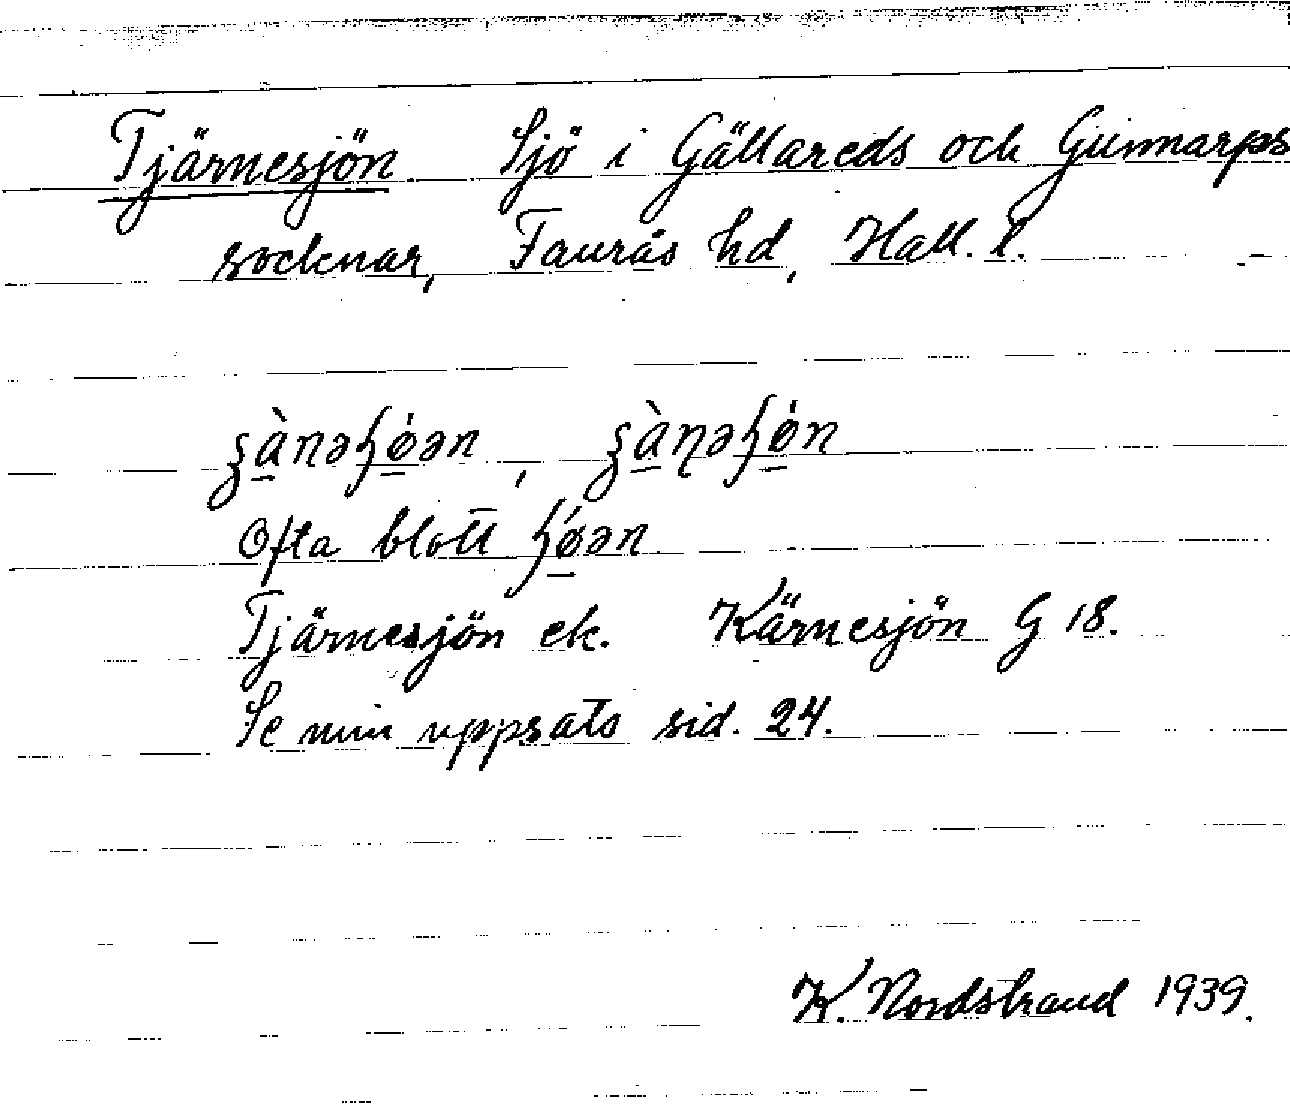 Tjärnesjön Sjö i Gällareds och Gunnarps
socknar, Faurås hd, Hall. l.
ʒà̱nəɧǿ̱ən, ʒà̱ɳəɧǿ̱n
Ofta blott ɧǿ̱ən
Tjärnesjön ek. Kärnesjön G 18.
Se min uppsats sid. 24.
K. Nordstrand 1939.